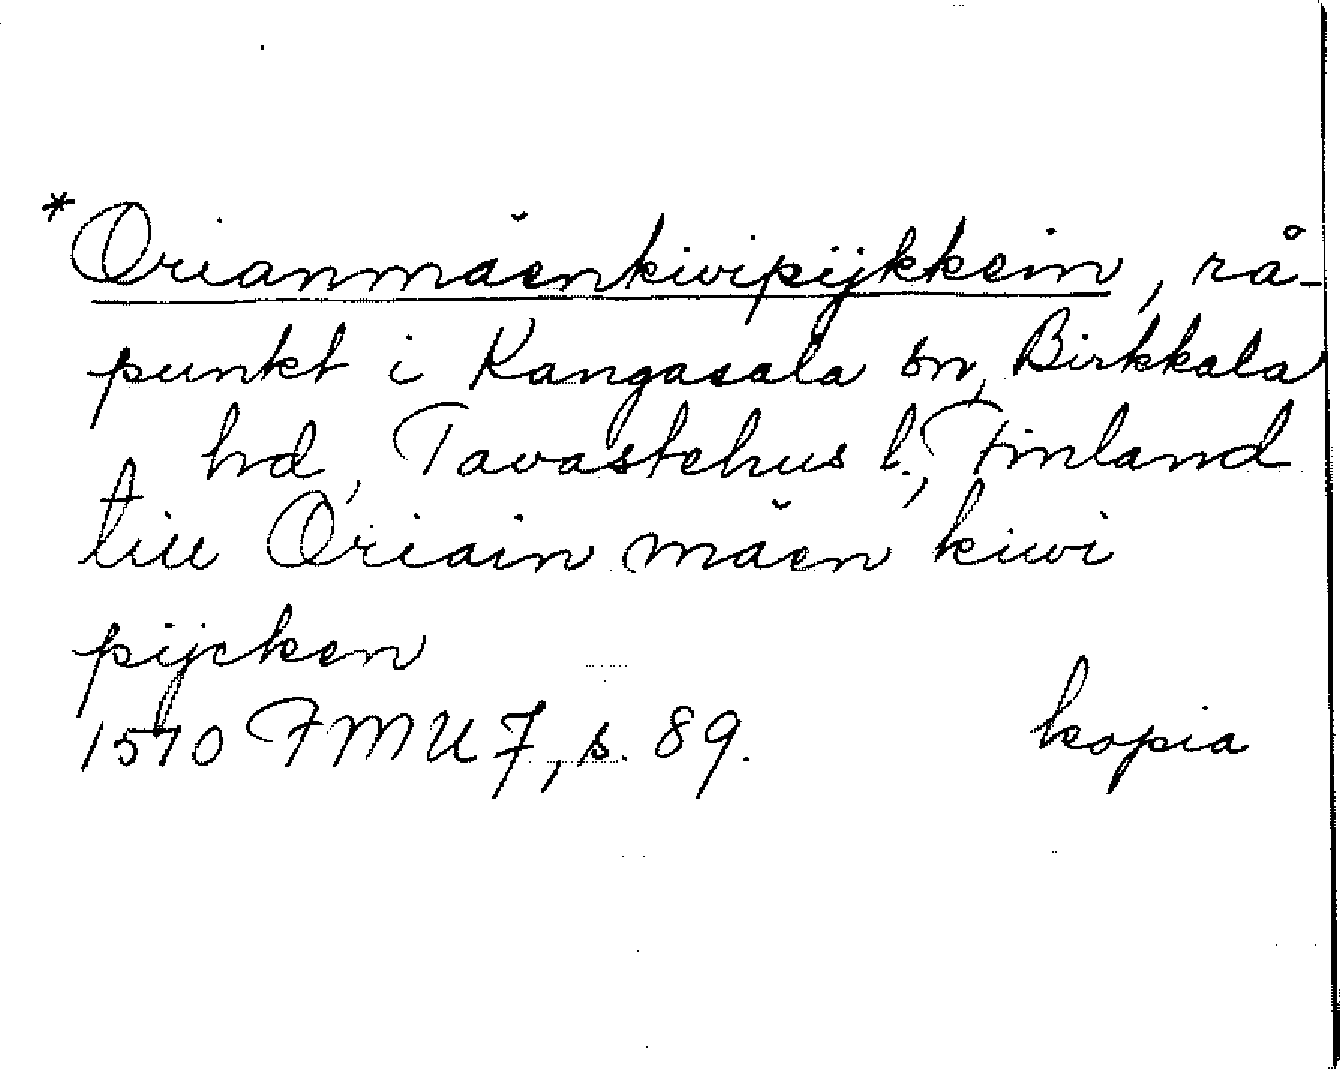 *Orianmäenkivipijkkein, rå-
punkt i Kangasala sn, Birkkala
hd, Tavastehus l., Finland
till Oriain mäen kiwi
pijcken
1510 FMU 7, s. 89. kopia